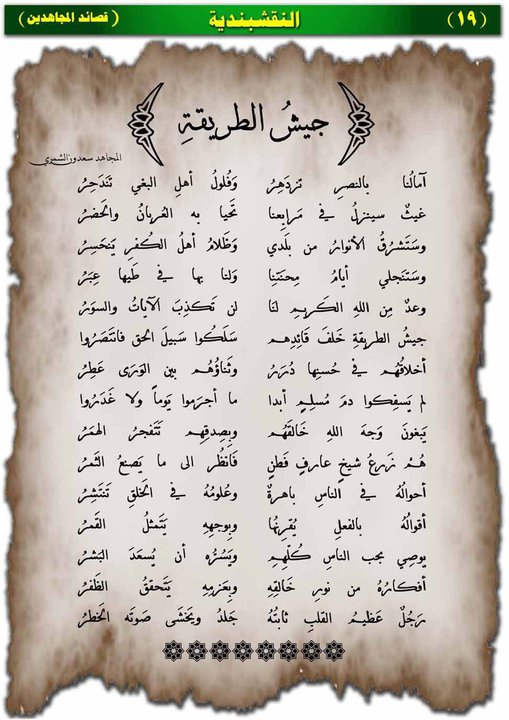 (١٩) النقشبندية ( قصائد المجاهدين )
جيشُ الطريقةِ
المجاهد سعدون الشمري
آمالُنا بالنصرِ تزدَهِرُ وَفُلولُ أهلِ البغي تَندَحِرُ
غيثٌ سينزلُ في مَرابِعنا تَحيا به العُربانُ والحَضرُ
وسَتَشرُقُ الأنوارُ من بلَدي وَظَلامُ أهلُ الكُفرِ يَنحَسِرُ
وسَتَنجَلي أيامُ مِحنَتِنا ولنا بها في طَيها عِبَرُ
وعدٌ مِن اللهِ الكَريمِ لنا لن تَكذِبَ الآياتُ والسوَرُ
جيشُ الطريقةِ خَلفَ قَائدِهم سَلَكُوا سَبيلَ الحق فانتَصَرُوا
أخلاقُهُم في حُسنِها دُرَرُ وثَناؤُهُم بين الوَرَى عَطِرُ
لم يَسفِكوا دمَ مُسلِمٍ أبدا ما أجرَموا يَوماً ولا غَدَرُوا
يَبغونَ وَجهَ اللهِ خَالقَهُم وبِصِدقِهِم تَتَفجرُ الهمَرُ
هُم زَرعُ شيخٍ عارفٍ فَطِنٍ فَانظُر الى ما يَصنعُ الثَمرُ
أحوالُهُ في الناسِ باهرةٌ وعُلومُهُ في الخَلقِ تَنتَشِرُ
أقوالُهُ بالفعلِ يُقرِنُها وبوجهِهِ يَتَمثلُ القَمرُ
يوصِي بحب الناسِ كُلهِمِ ويَسُرُّه أن يُسعَدَ البَشرُ
أفكارُهُ من نورِ خَالقِهِ وبعَزمِهِ يَتَحققُ الظفرُ
رَجُلٌ عَظيمُ القلبِ ثابتُهُ جَلدٌ ويَخشَى صَوتَه الخَطرُ